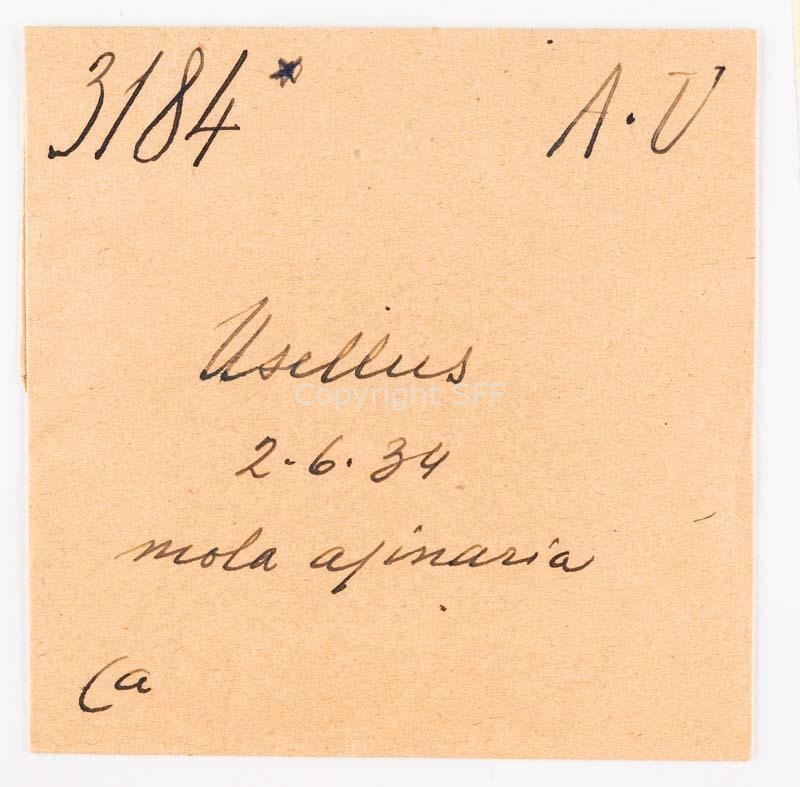 3184* A. V
Usellus
Copyright SFF
2.6.34
mola asinaria
Ca